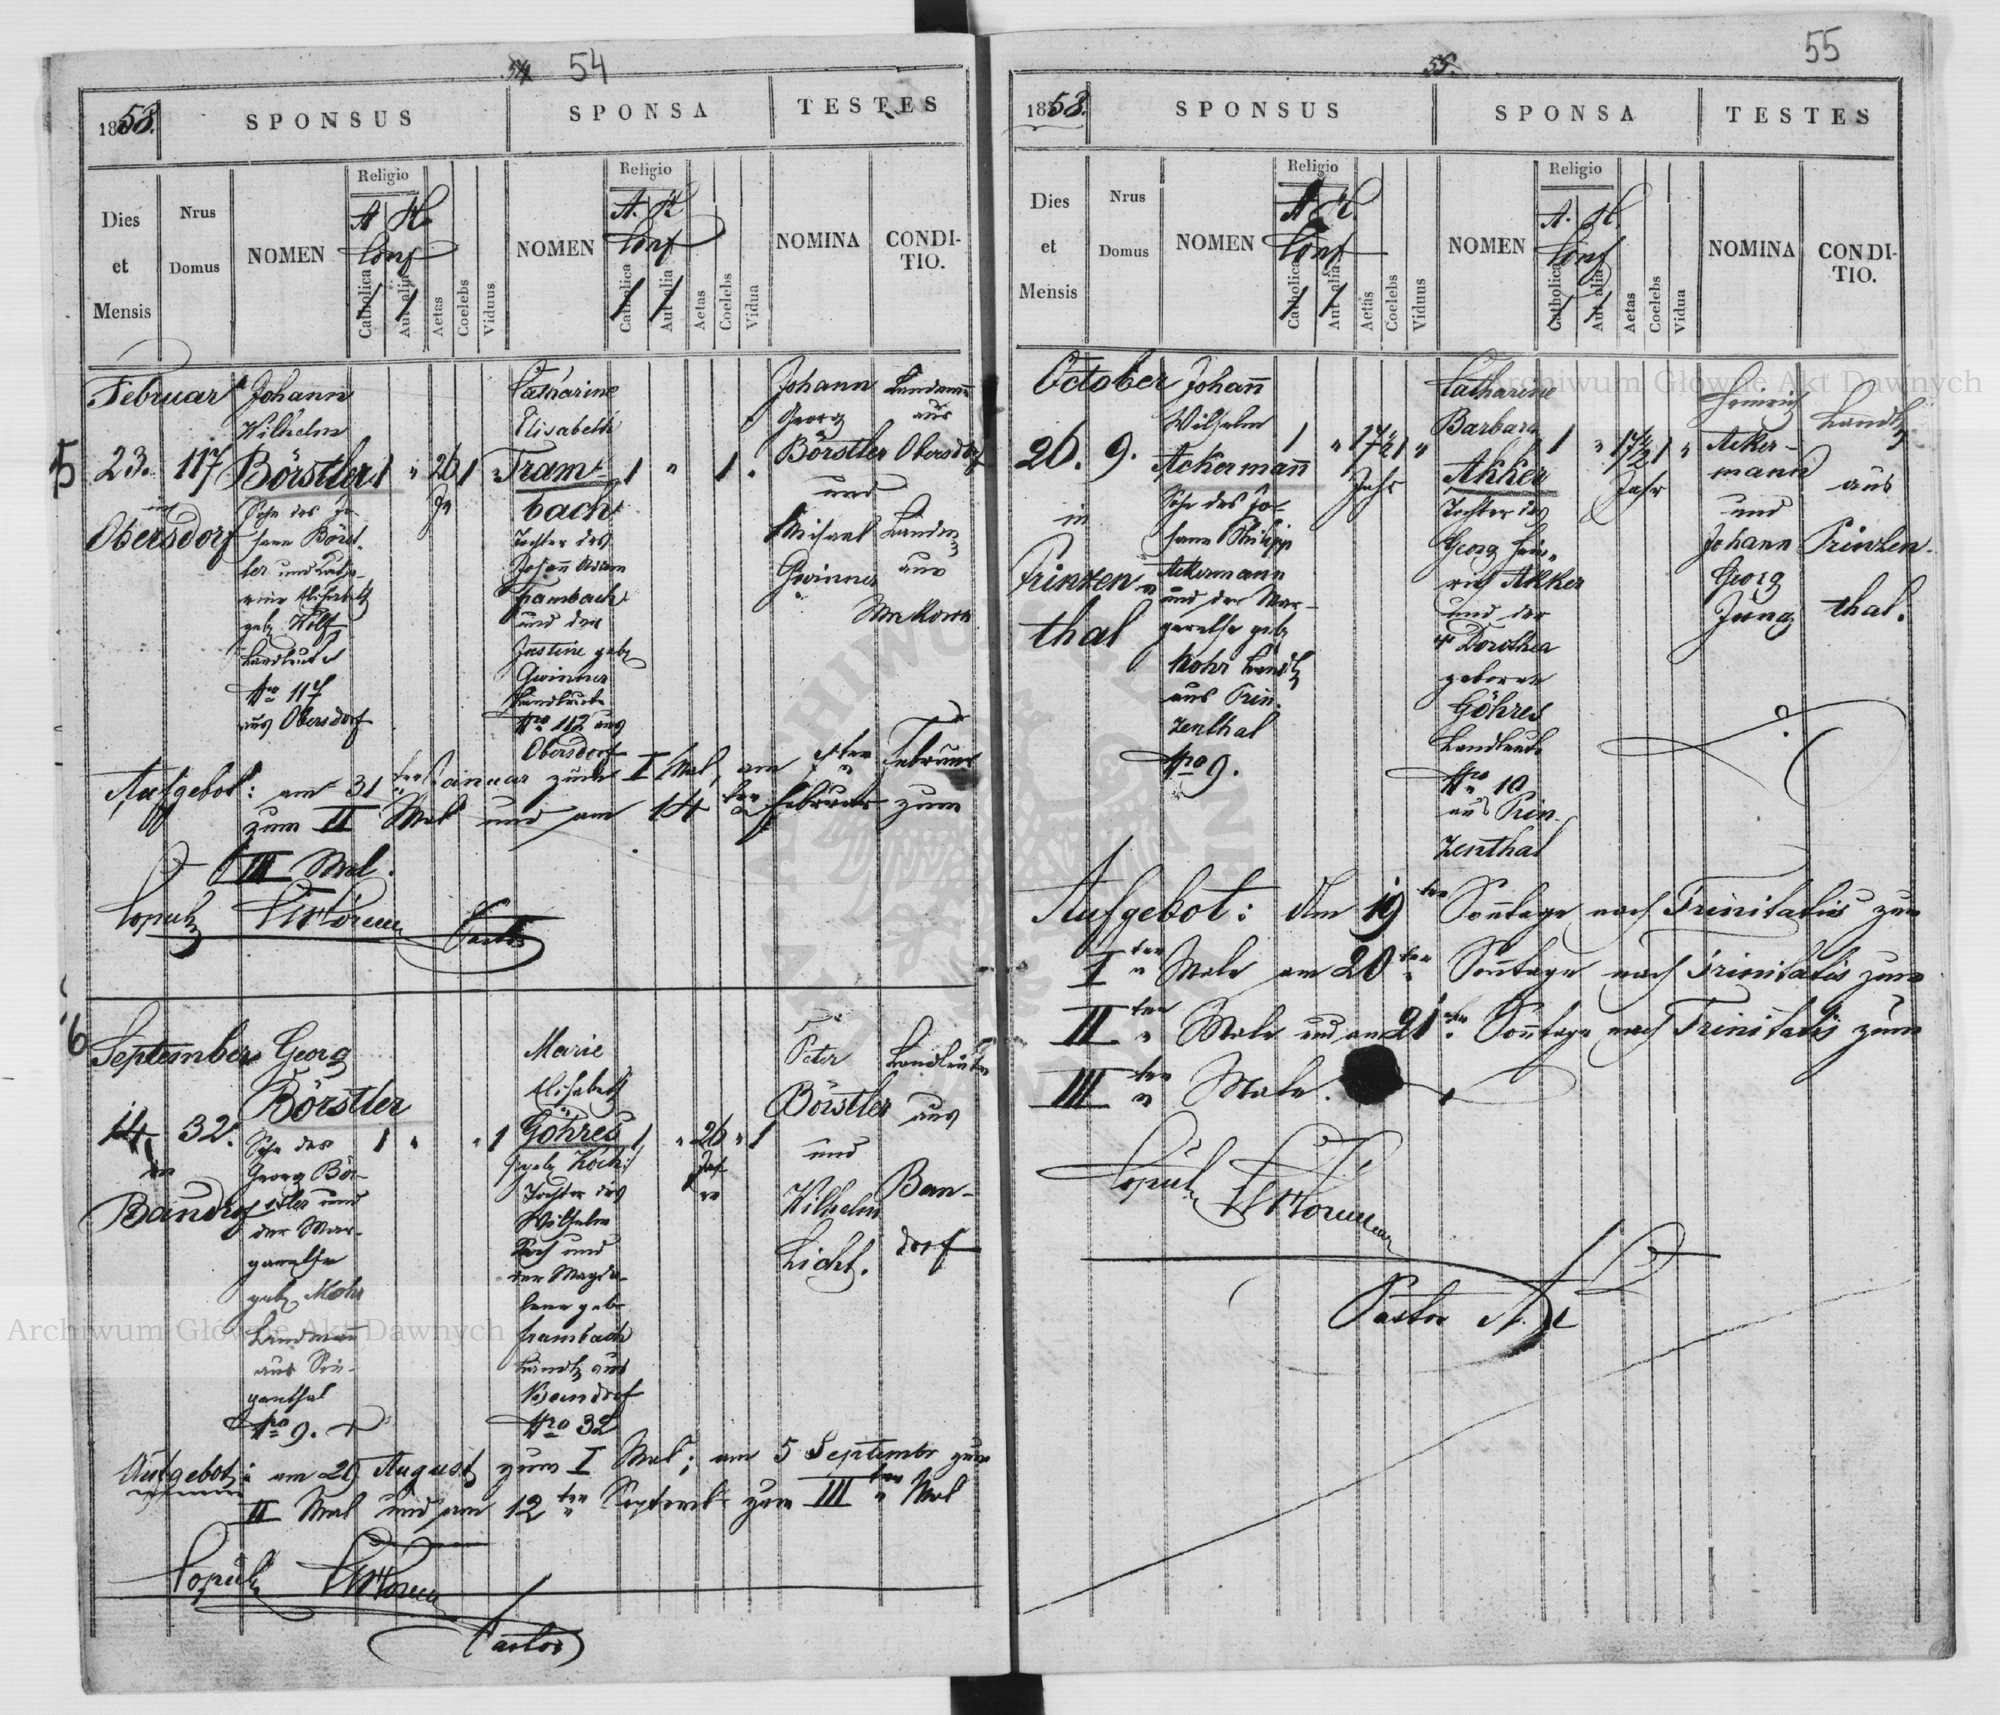 54
54
1858.
SPONSUS
SPONSA
TESTES
Dies
et
Mensis
Nrus
Domus
NOMEN
Religio
A H
Conf
Catholica
Aut alia
Aetas
Coelebs
Viduus
NOMEN
Religio
A. H
Conf
Catholica
Aut alia
Aetas
Coelebs
Vidua
NOMINA
CONDI-
TIO.
5
Februar
23.
in
Obersdorf
117
Johann
Wilhelm
Börstler
Sohn des Jo-
hann Börst-
ler und Katha-
rine Elisabeth
geb Wolf
Landleute
Nro 117
aus Obersdorf
1 " 26 1 "
Ja
Catharine
Elisabeth
Tram-
bach
Tochter des
Johann Adam
Trambach
und der
Justine geb
Gwinner
Landleute
Nro 112 aus
Obersdorf
1 " 1.
Johann
Georg
Börstler
und
Michael
Gwinner
Landmann
aus
Obersdorf
aus
Makowa
Aufgebot: am 31ten Januar zum I Mal, am ten Februar
zum II Mal und am 14ten Februar zum
III Mal.
Copul
Pastor
6
September
14.
in
Bandrof
32.
Georg
Börstler
Sohn des
Georg Bör-
stler und
der Mar-
garethe
geb Mohr
Landmann
aus
Nro 9.
1 " " 1
Marie
Elisabeth
Göhres
geb Koch
Tochter des
Wilhelm
Koch und
der Magda-
lene geb
Trambach
Landl aus
Bandrof
Nro 32
1 " 26 " 1
Jah-
re
Peter
Börstler
und
Wilhelm
Licht.
Landleute
aus
Ban-
drof
Aufgebot: am 29 August zum I Mal; am 5 Septembr zum
II Mal und am 12ten Septemb zum III ten Mal
Copul
Pastor
55
55.
1858.
SPONSUS
SPONSA
TESTES
Dies
et
Mensis
Nrus
Domus
NOMEN
Religio
A H
Conf
Catholica
Aut alia
Aetas
Coelebs
Viduus
NOMEN
Religio
A. H.
Conf
Catholica
Aut alia
Aetas
Coelebs
Vidua
NOMINA
CONDI-
TIO.
October
26.
in
Prinzen
thal
9.
Johann
Wilhelm
Ackermann
Sohn des Jo-
hann Philipp
Ackermann
und der Mar-
garethe geb
Mohr Landl
aus Prin-
zenthal
Nro 9.
1 " 17½ 1 "
Jahr
Catharine
Barbara
Akker
Tochter des
Georg Hein-
rich Akker
und der
Dorothea
geboren
Göhres
Landleute
Nro 10
aus Prin-
zenthal
1 " 17½ 1 "
Jahr
Heinrich
Acker-
mann
und
Johann
Georg
Jung
Landl
aus
Prinzen-
thal.
Aufgebot: Am 19ten Sonntage nach Trinitatis zum
I ten Male am 20ten Sonntage nach Trinitatis zum
II ten Male und am 21ten Sonntage nach Trinitatis zum
III ten Male.
Copul
Pastor
Archiwum Główne Akt Dawnych
Archiwum Główne Akt Dawnych